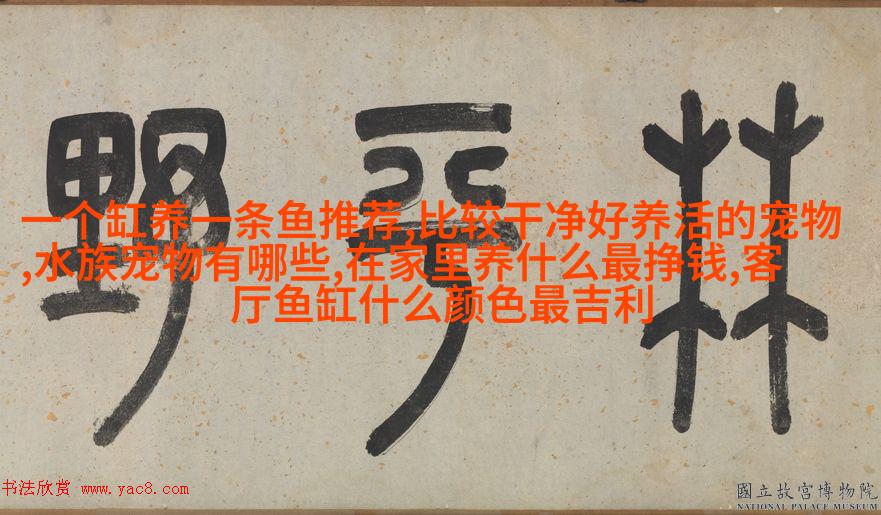 林平野
一个缸养一条鱼推荐,比较干净好养活的宠物
,水族宠物有哪些,在家里养什么最挣钱,客
厅鱼缸什么颜色最吉利
书法欣赏 www.yac8.com
國立故宮博物院
NATIONAL PALACE MUSEUM